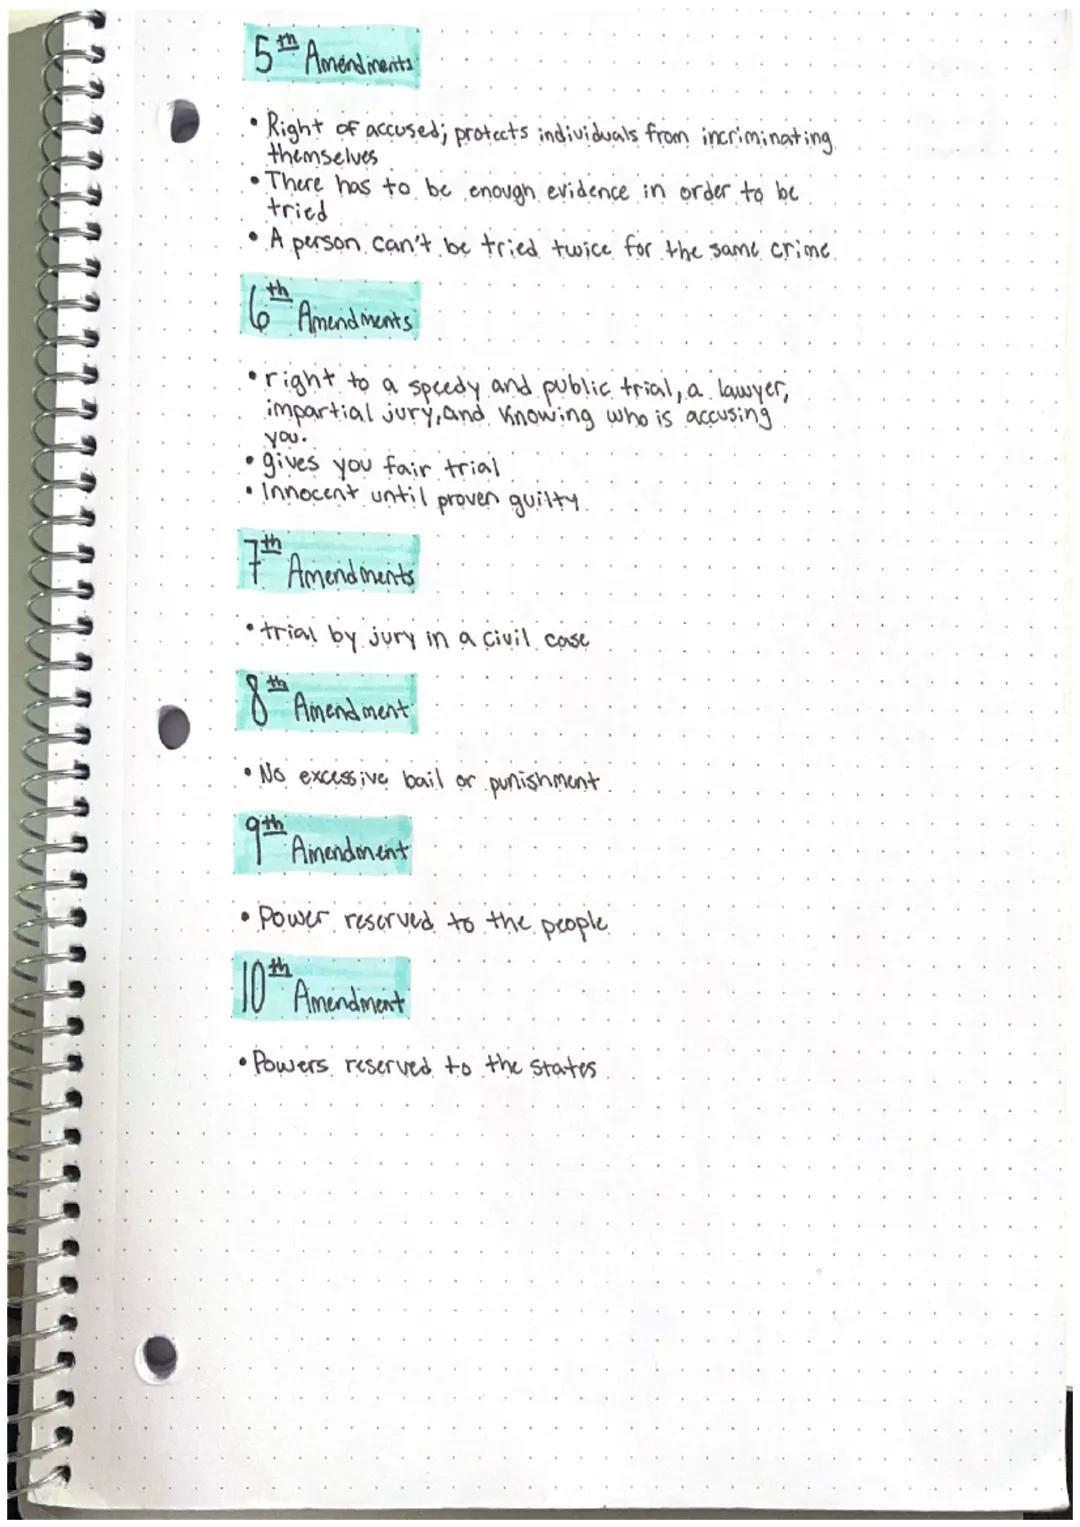 5th Amendments
• Right of accused; protects individuals from incriminating
themselves
• There has to be enough evidence in order to be
tried
• A person can't be tried twice for the same crime
6th Amendments
• right to a speedy and public trial, a lawyer,
impartial jury, and knowing who is accusing
you.
• gives you fair trial
• Innocent until proven guilty
7th Amendments
• trial by jury in a civil case
8th Amendment
• No excessive bail or punishment
9th Amendment
• Power reserved to the people
10th Amendment
• Powers reserved to the states